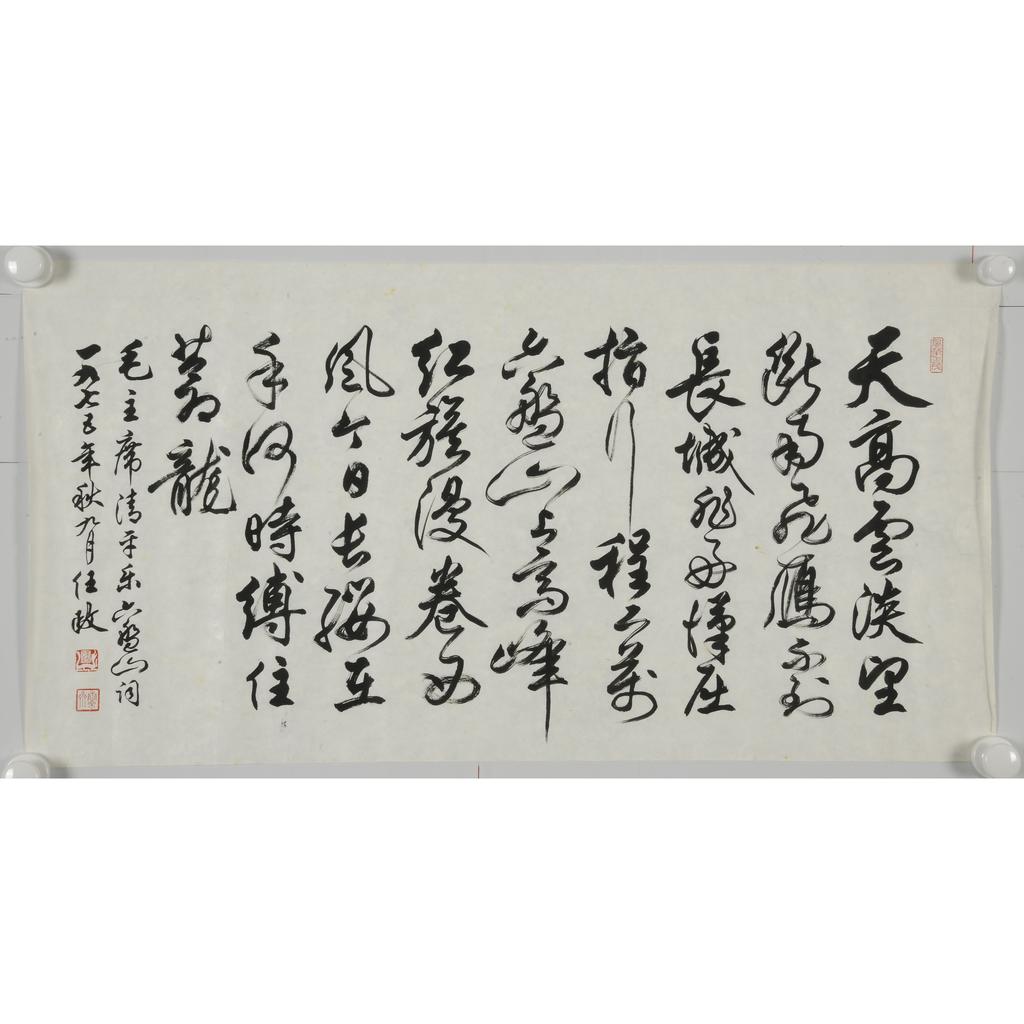 天高雲淡望
斷南飛雁不到
長城非好漢屈
指行程二萬
六盤山上高峰
紅旗漫卷西
風今日長纓在
手何時縛住
蒼龍
毛主席清平乐六盘山词
一九七五年秋九月任政